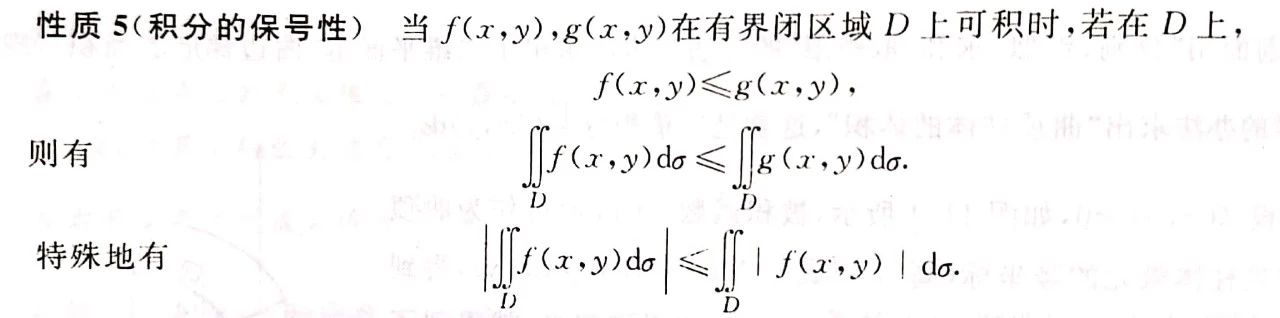 性质 5(积分的保号性) 当 f(x,y),g(x,y)在有界闭区域 D 上可积时,若在 D 上,
f(x,y)≤g(x,y),
则有 ∬_D f(x,y)dσ ≤ ∬_D g(x,y)dσ.
特殊地有 |∬_D f(x,y)dσ| ≤ ∬_D | f(x,y) | dσ.